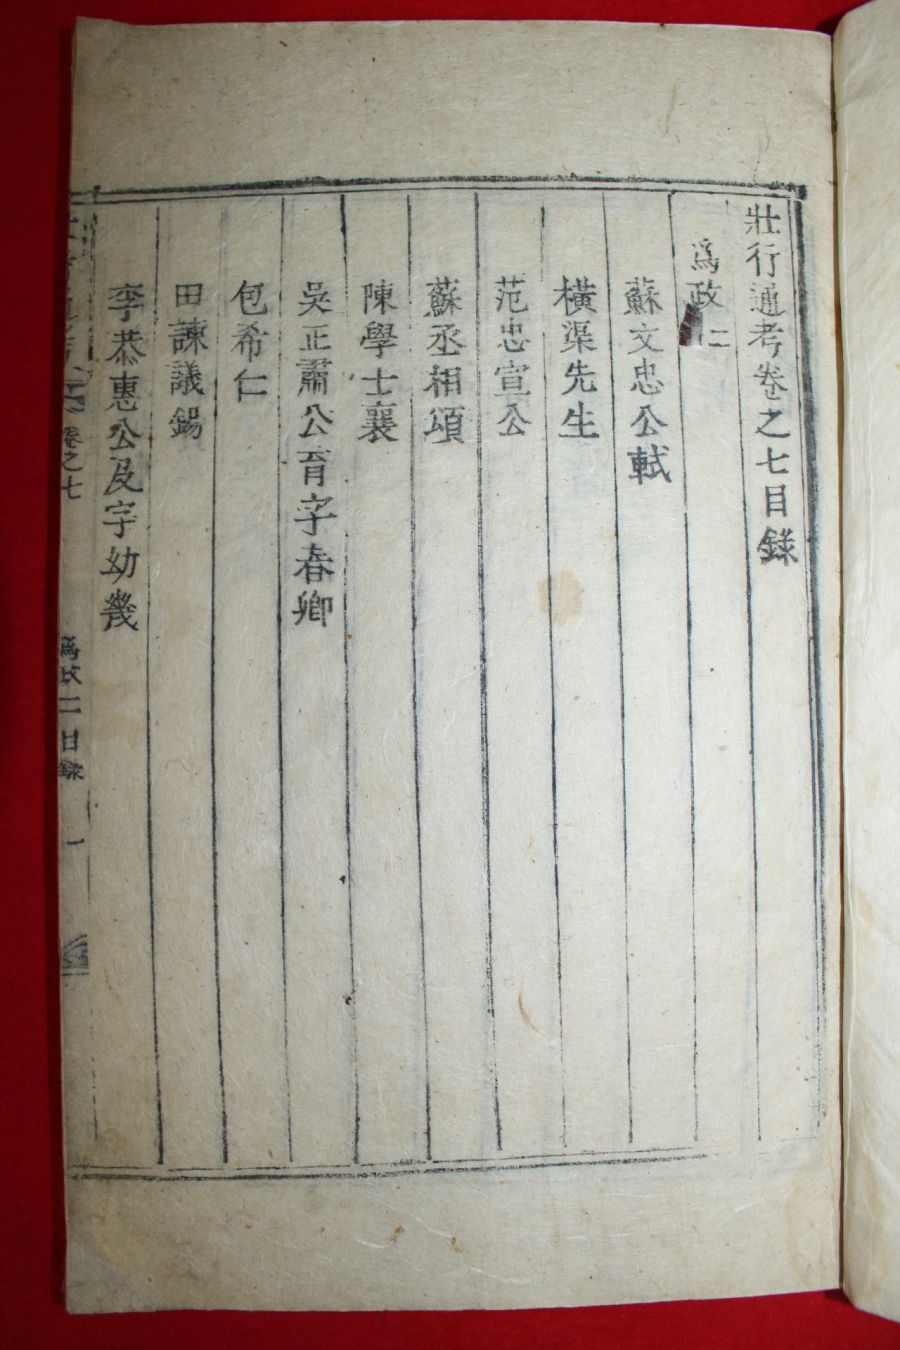 壯行通考卷之七目錄
爲政二
蘇文忠公軾
橫渠先生
范忠宣公
蘇丞相頌
陳學士襄
吳正肅公育字春卿
包希仁
田諫議錫
李恭惠公及字幼幾
卷之七
爲政二目錄
一